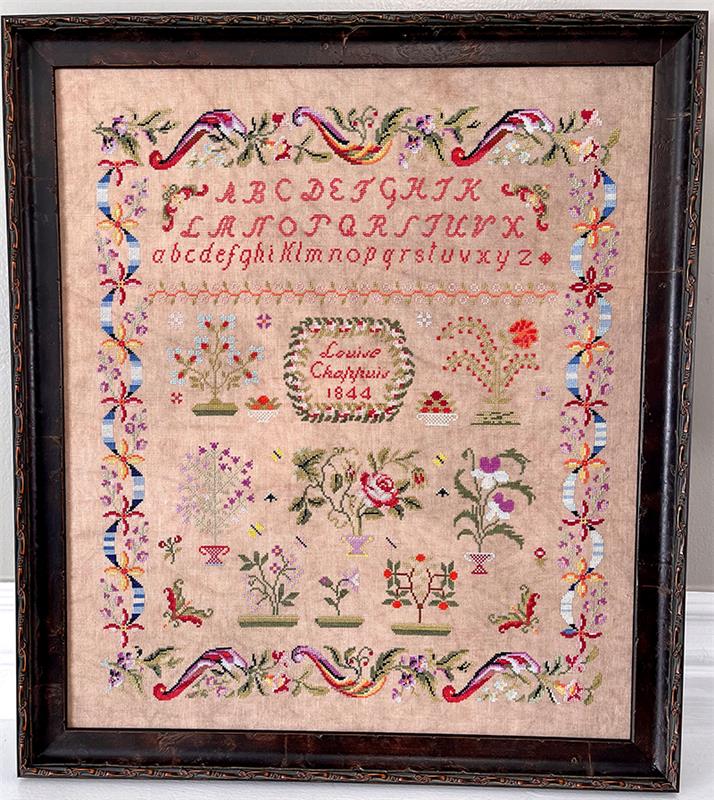 A B C D E F G H I K
L M N O P Q R S T U V X
a b c d e f g h i K l m n o p q r s t u v x y z
Louise
Chappuis
1844